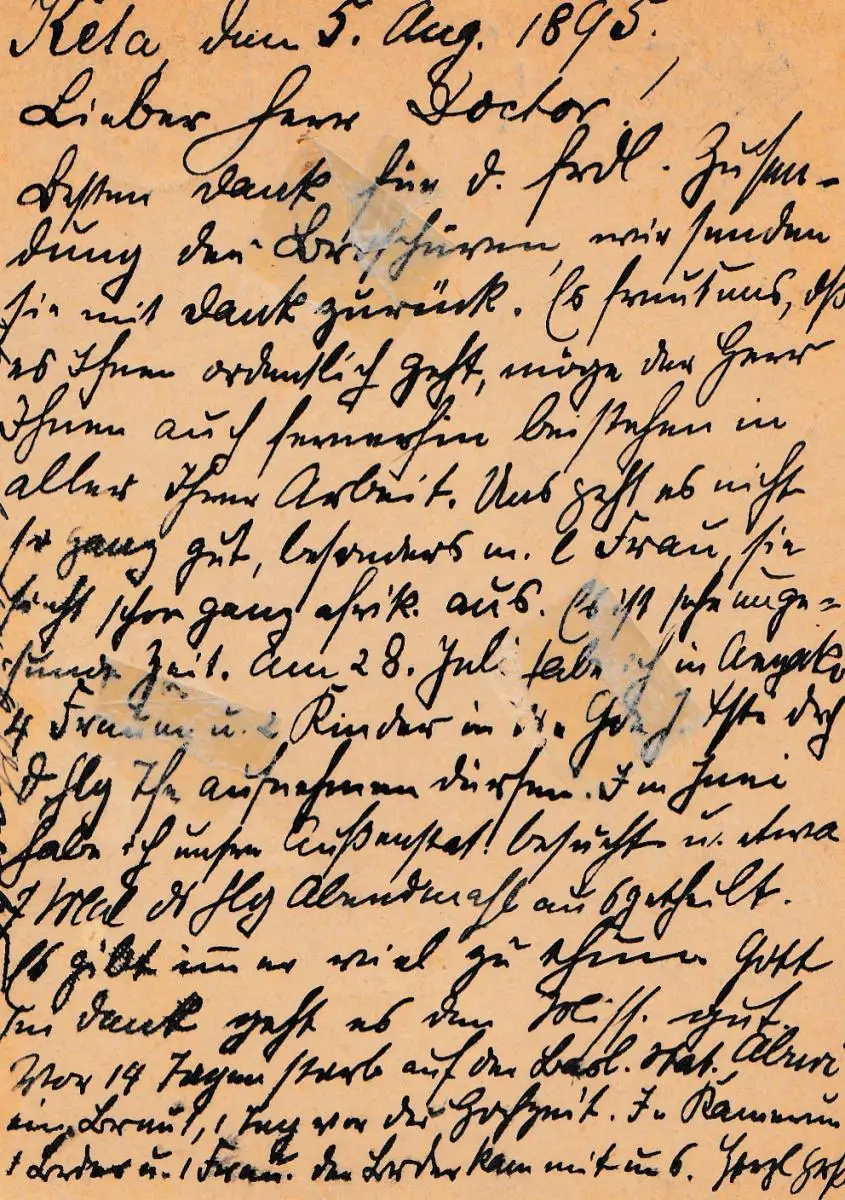 Keta, den 5. Aug. 1895.
Lieber Herr Doctor!
Besten Dank für d. frdl. Zusen-
dung der Broschüren, wir senden
sie mit Dank zurück. Es freut uns, dß
es Ihnen ordentlich geht, möge der Herr
Ihnen auch fernerhin beistehen in
aller Ihrer Arbeit. Uns geht es nicht
so ganz gut, besonders m. l Frau, sie
sieht schon ganz afrik. aus. Es ist sehr unge=
sunde Zeit. Am 28. Juli habe ich in
4 Frauen u. 2 Kinder in die Gde J. Chr. dch
d. hlg Tfe aufnehmen dürfen. Im Juni
habe ich unsre Außenstat. besucht u. etwa
7 Mal ds hlg Abendmahl ausgetheilt.
Es gibt immer viel zu thun. Gott
sei Dank geht es den Miss. gut.
Vor 14 Tagen starb auf der Basl. Stat. Aburi
eine Braut, 1 Tag vor der Hochzeit. In Kamerun
1 Bruder u. 1 Frau. Der Bruder kam mit uns. Herzl